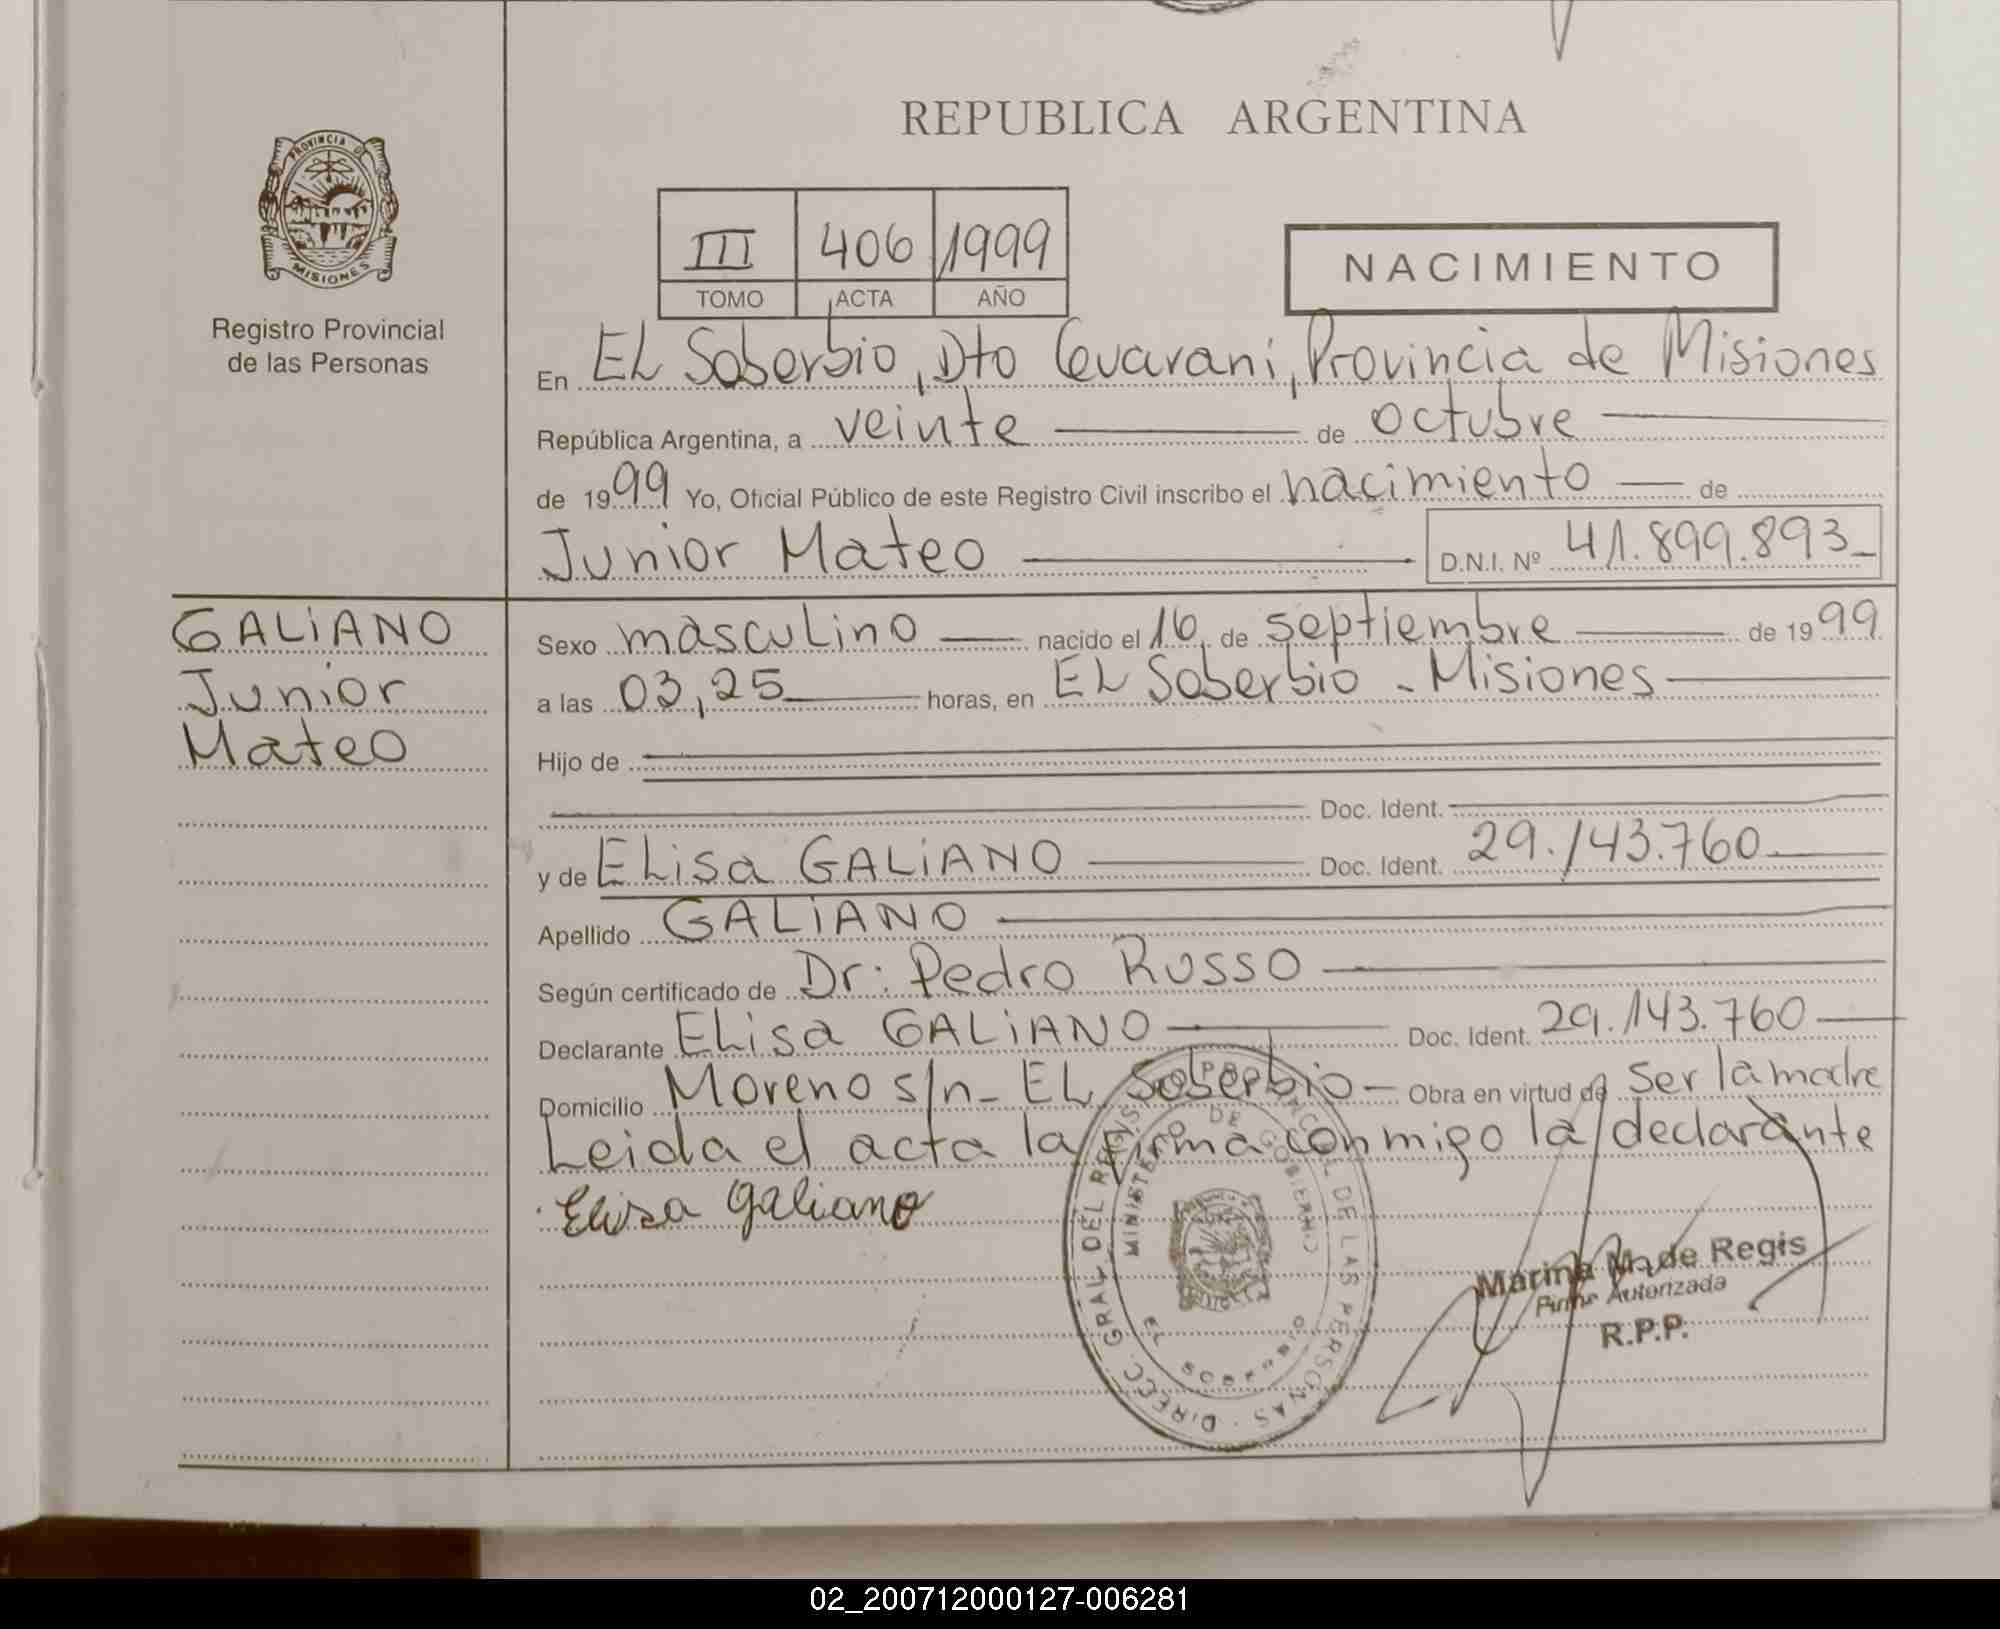 REPUBLICA ARGENTINA
PROVINCIA DE
MISIONES
Registro Provincial
de las Personas
III 406 1999
TOMO ACTA AÑO
NACIMIENTO
En EL Soberbio, Dto Guarani, Provincia de Misiones
República Argentina, a veinte de octubre
de 1999 Yo, Oficial Público de este Registro Civil inscribo el nacimiento de
Junior Mateo D.N.I. Nº 41.899.893
GALiANO
Junior
Mateo
Sexo masculino nacido el 16 de septiembre de 1999
a las 03,25 horas, en EL Soberbio - Misiones
Hijo de
Doc. Ident.
y de ELisa GALiANO Doc. Ident. 29.143.760
Apellido GALiANO
Según certificado de Dr: Pedro Russo
Declarante ELisa GALiANO Doc. Ident. 29.143.760
Domicilio Moreno s/n - EL Soberbio - Obra en virtud de ser la madre
Leida el acta la firma conmigo la declarante
Elisa Galiano
DIREC. GRAL. DEL REGIS PROVINCIAL DE LAS PERSONAS
MINISTERIO DE GOBIERNO
Marina M. de Regis
Firma Autorizada
R.P.P.
02_200712000127-006281